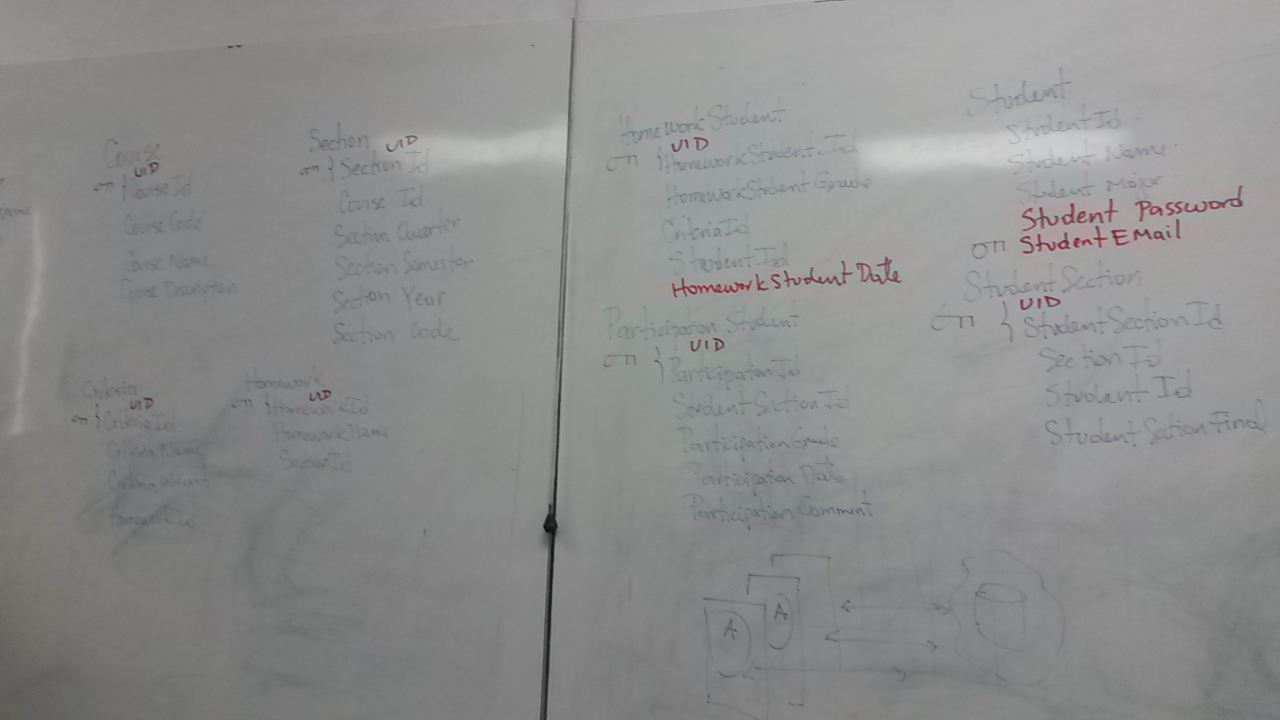 Course
UID
Course Id
Course Code
Course Name
Course Description
Section UID
Section Id
Course Id
Section Quarter
Section Semester
Section Year
Section Code
Criteria
UID
Criteria Id
Criteria Name
Criteria
Homework
UID
Homework Id
Homework Name
Section Id
HomeWork Student
UID
HomeworkStudent Id
HomeworkStudent Grade
Criteria Id
Student Id
Homework Student Date
Participation Student
UID
Participation Id
Student Section Id
Participation Grade
Participation Date
Participation Comment
A A
Student
Student Id
Student Name
Student Major
Student Password
Student EMail
Student Section
UID
Student Section Id
Section Id
Student Id
Student Section Final